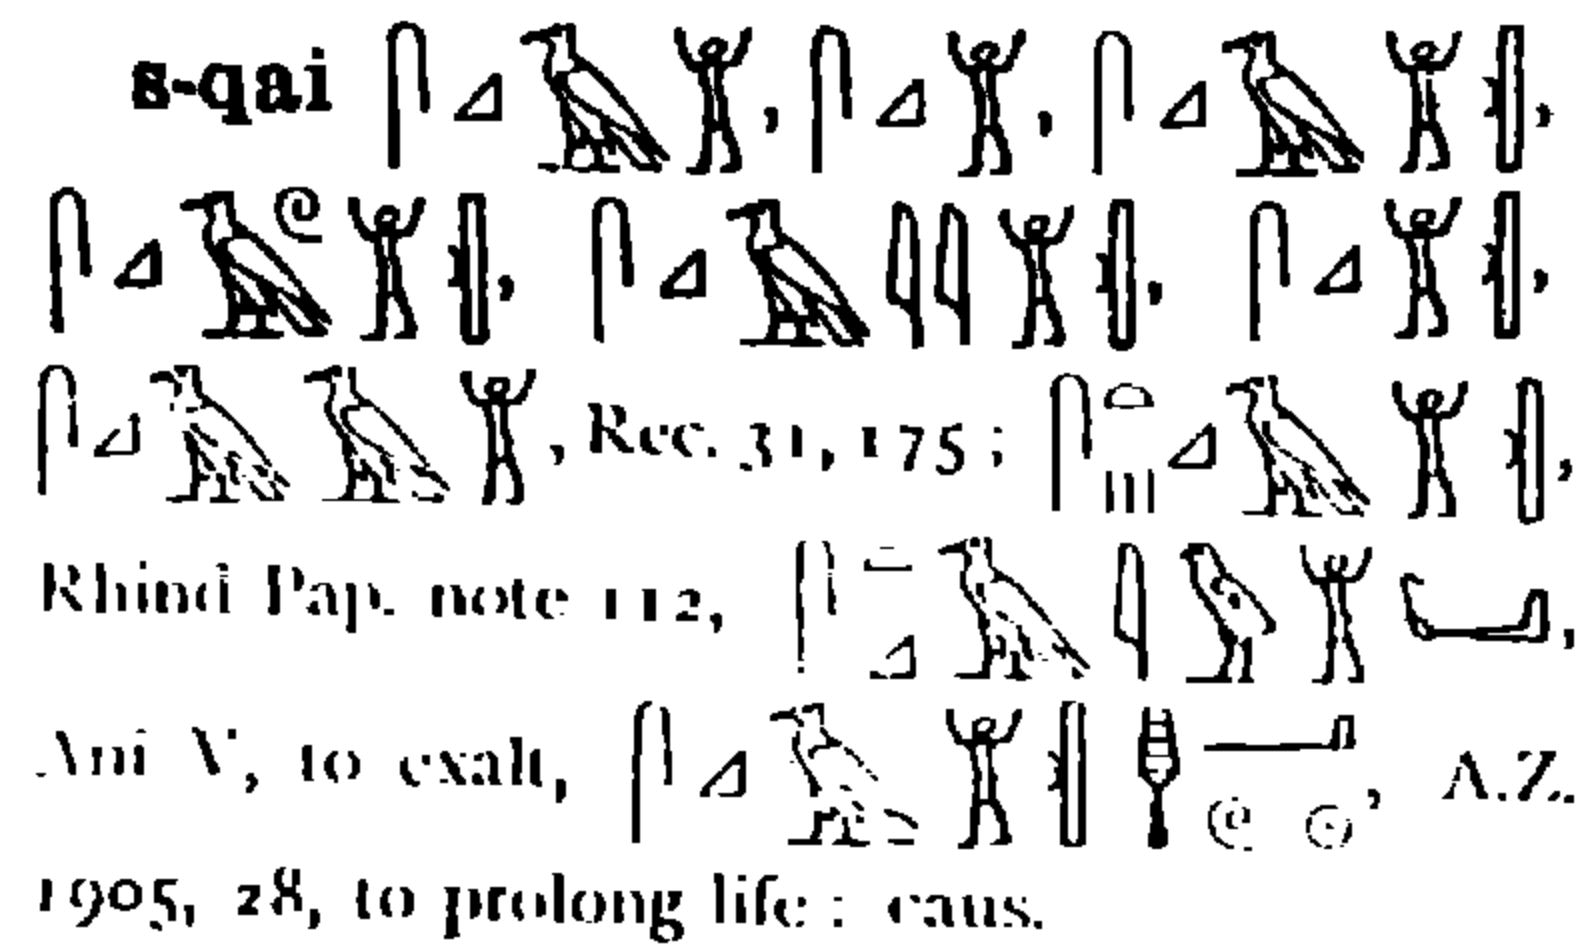 s-qai 𓋴𓈎𓄿𓀠, 𓋴𓈎𓀠, 𓋴𓈎𓄿𓀠𓏜,
𓋴𓈎𓄿𓏲𓀠𓏜, 𓋴𓈎𓄿𓇋𓇋𓀠𓏜, 𓋴𓈎𓀠𓏜,
𓋴𓈎𓄿𓄿𓀠, Rec. 31, 175; 𓋴𓏏𓏥𓈎𓄿𓀠𓏜,
Rhind Pap. note 112, 𓋴𓈎𓄿𓇋𓅱𓀠,
Ani V, to exalt, 𓋴𓈎𓄿𓀠𓏜𓊢𓂝𓏲𓇳, A.Z.
1905, 28, to prolong life : caus.